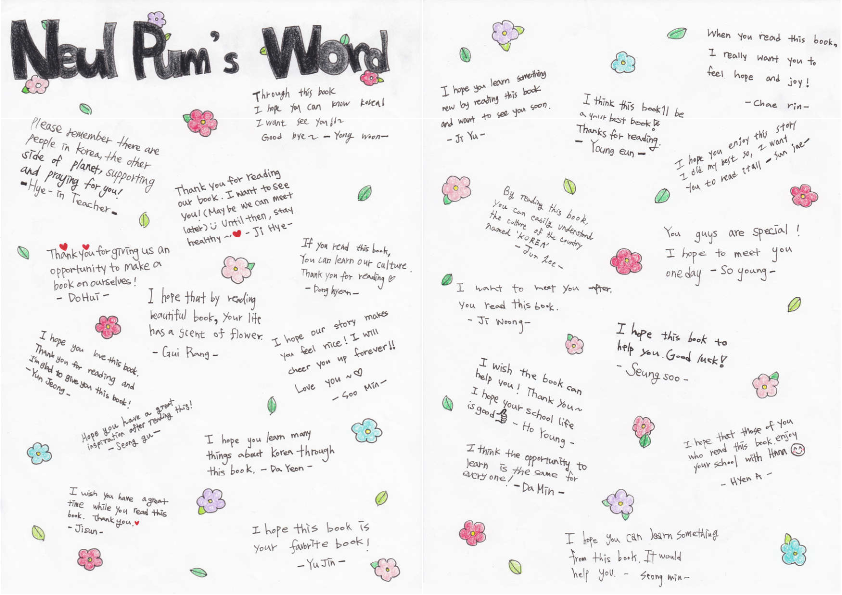 Neul Pum's Word
Through this book
I hope you can know Korea!
I want see you!!
Good bye~ - Yong woon-
Please remember there are
people in Korea, the other
side of planet, supporting
and praying for you!
-Hye-in Teacher-
Thank you for reading
our book. I want to see
you! (May be we can meet
later) Until then, stay
healthy ~ ♥ - Ji Hye-
Thank you for giving us an
opportunity to make a
book on ourselves!
- DoHui -
If you read this book,
You can learn our culture.
Thank you for reading
- Dong hyeon -
I hope that by reading
beautiful book, your life
has a scent of flower.
- Gui Rang -
I hope you love this book.
Thank you for reading and
I'm glad to give you this book!
- Yun Jeong -
I hope our story makes
you feel nice! I will
cheer you up forever!!
Love you ~♡
- Soo Min -
Hope you have a great
inspiration after reading this!
- Seong gu -
I hope you learn many
things about Korea through
this book. - Da Yeon -
I wish you have a great
time while you read this
book. Thank you. ♥
- Jisun -
I hope this book is
your favorite book!
- Yu Jin -
I hope you learn something
new by reading this book
and want to see you soon.
- Ji Yu -
I think this book'll be
a your best book!
Thanks for reading.
- Young eun -
When you read this book,
I really want you to
feel hope and joy!
- Chae rin -
I hope you enjoy this story
I did my best. so, I want
you to read it all - Jun jae -
By reading this book,
You can easily understand
the culture of the country
named 'KOREA'
You guys are special!
I hope to meet you
one day - So young -
I want to meet you after
you read this book.
- Ji Woong -
I hope this book to
help you. Good luck!
- Seung soo -
I wish the book can
help you! Thank you~
I hope your school life
is good - Ho Young -
I think the opportunity to
learn is the same for
everyone! - Da Min -
I hope that those of you
who read this book enjoy
your school with Hana
- Hyen A -
I hope you can learn something
from this book. It would
help you. - Seong min -